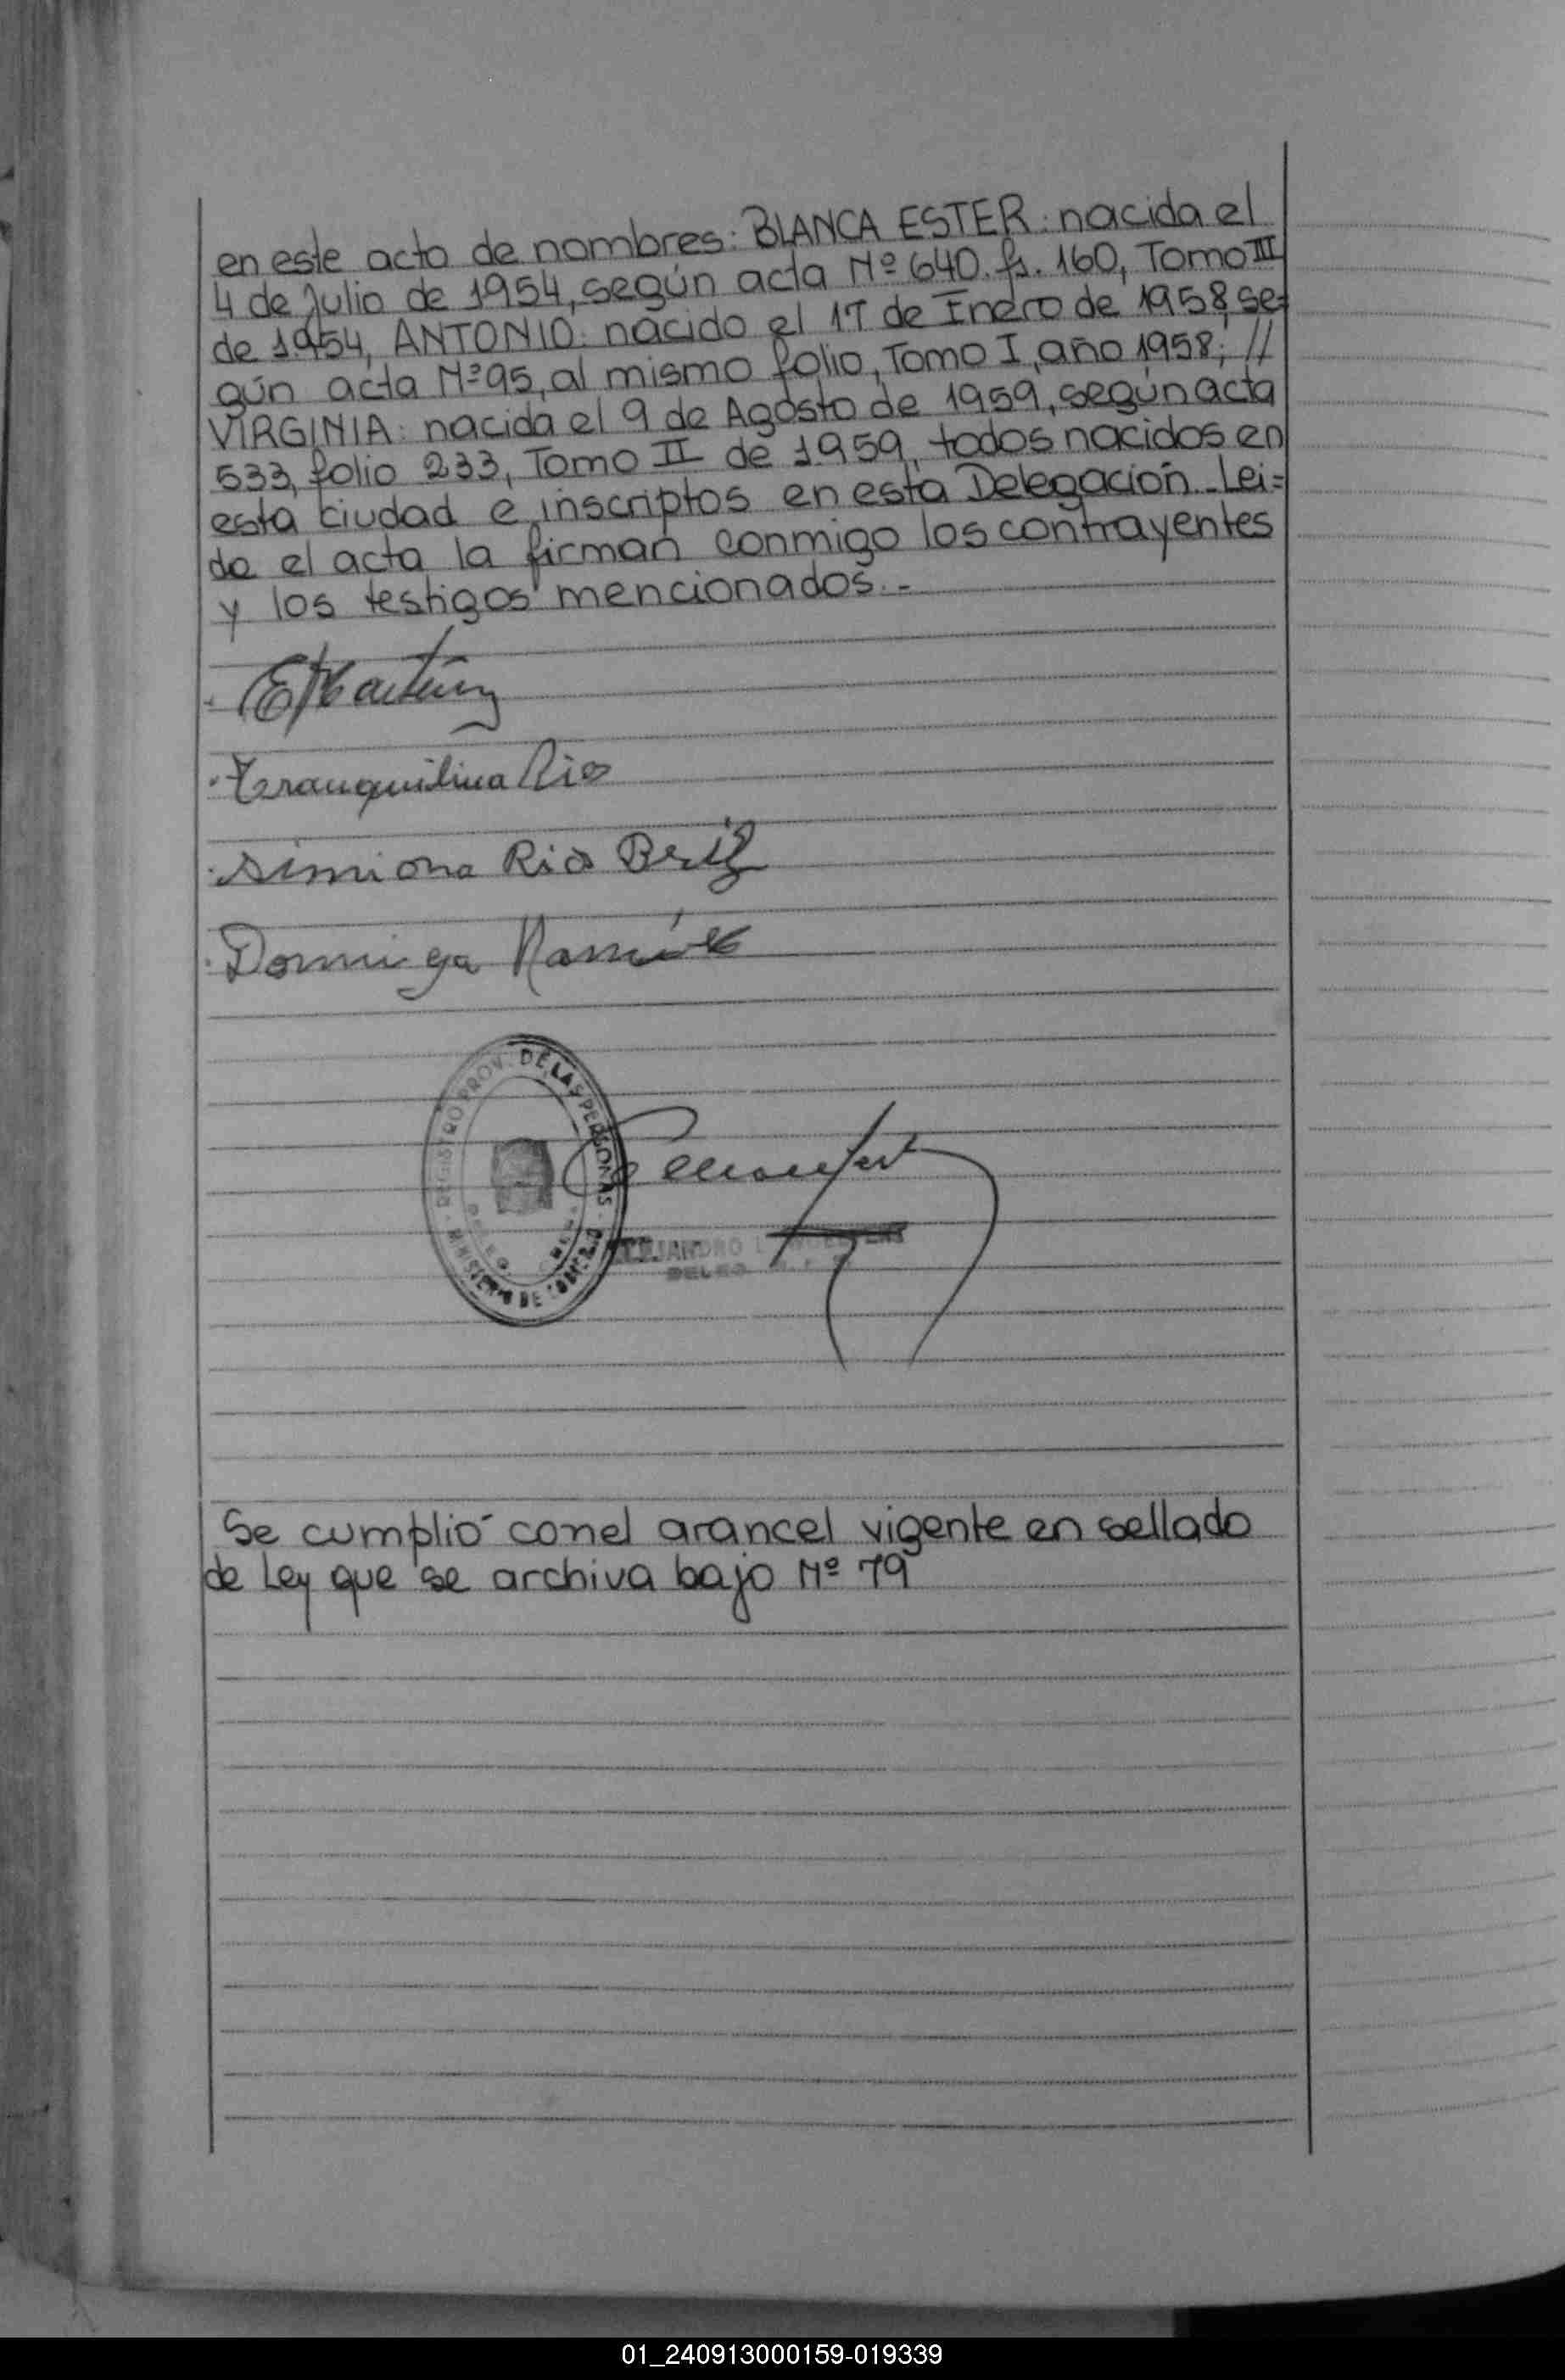 en este acto de nombres: BLANCA ESTER: nacida el
4 de Julio de 1954, según acta Nº 640. fs. 160, Tomo III
de 1954, ANTONIO: nacido el 17 de Enero de 1958, se=
gún acta Nº 95, al mismo folio, Tomo I, año 1958; //
VIRGINIA: nacida el 9 de Agosto de 1959, según acta
533, folio 233, Tomo II de 1959, todos nacidos en
esta ciudad e inscriptos en esta Delegación. Lei=
do el acta la firman conmigo los contrayentes
y los testigos mencionados.-
EMartínez
Tranquilina Rios
Simiona Rios Briz
Dominga Ramírez
REGISTRO PROV. DE LAS PERSONAS
MINISTERIO DE GOBIERNO
ALEJANDRO
DELEG
Se cumplió con el arancel vigente en sellado
de Ley que se archiva bajo Nº 79
01_240913000159-019339